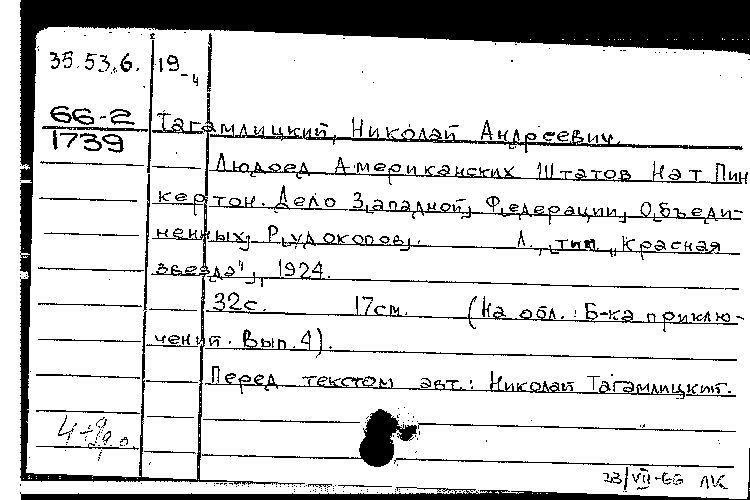 35.53.6. 19-4
66-2
1739
Тагамлицкий, Николай Андреевич.
Людоед Американских Штатов Нат Пин
кертон. Дело З[ападной] Ф[едерации] О[бъеди-
ненных] Р[удокопов]. Л., тип. "Красная
звезда", 1924.
32с. 17см. (На обл.: Б-ка приклю-
чений. Вып. 4).
Перед текстом авт.: Николай Тагамлицкий.
23/VII-66 ЛК